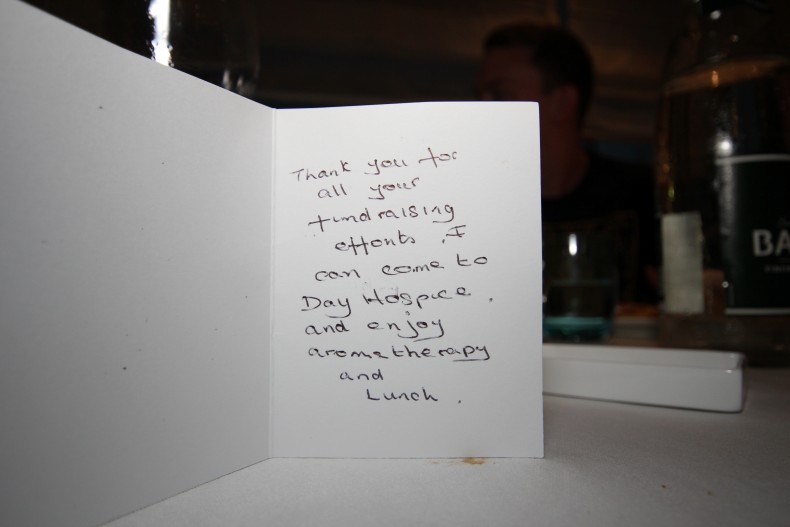 Thank you for
all your
fundraising
efforts . I
can come to
Day Hospice .
and enjoy
aromatherapy
and
Lunch .
BA